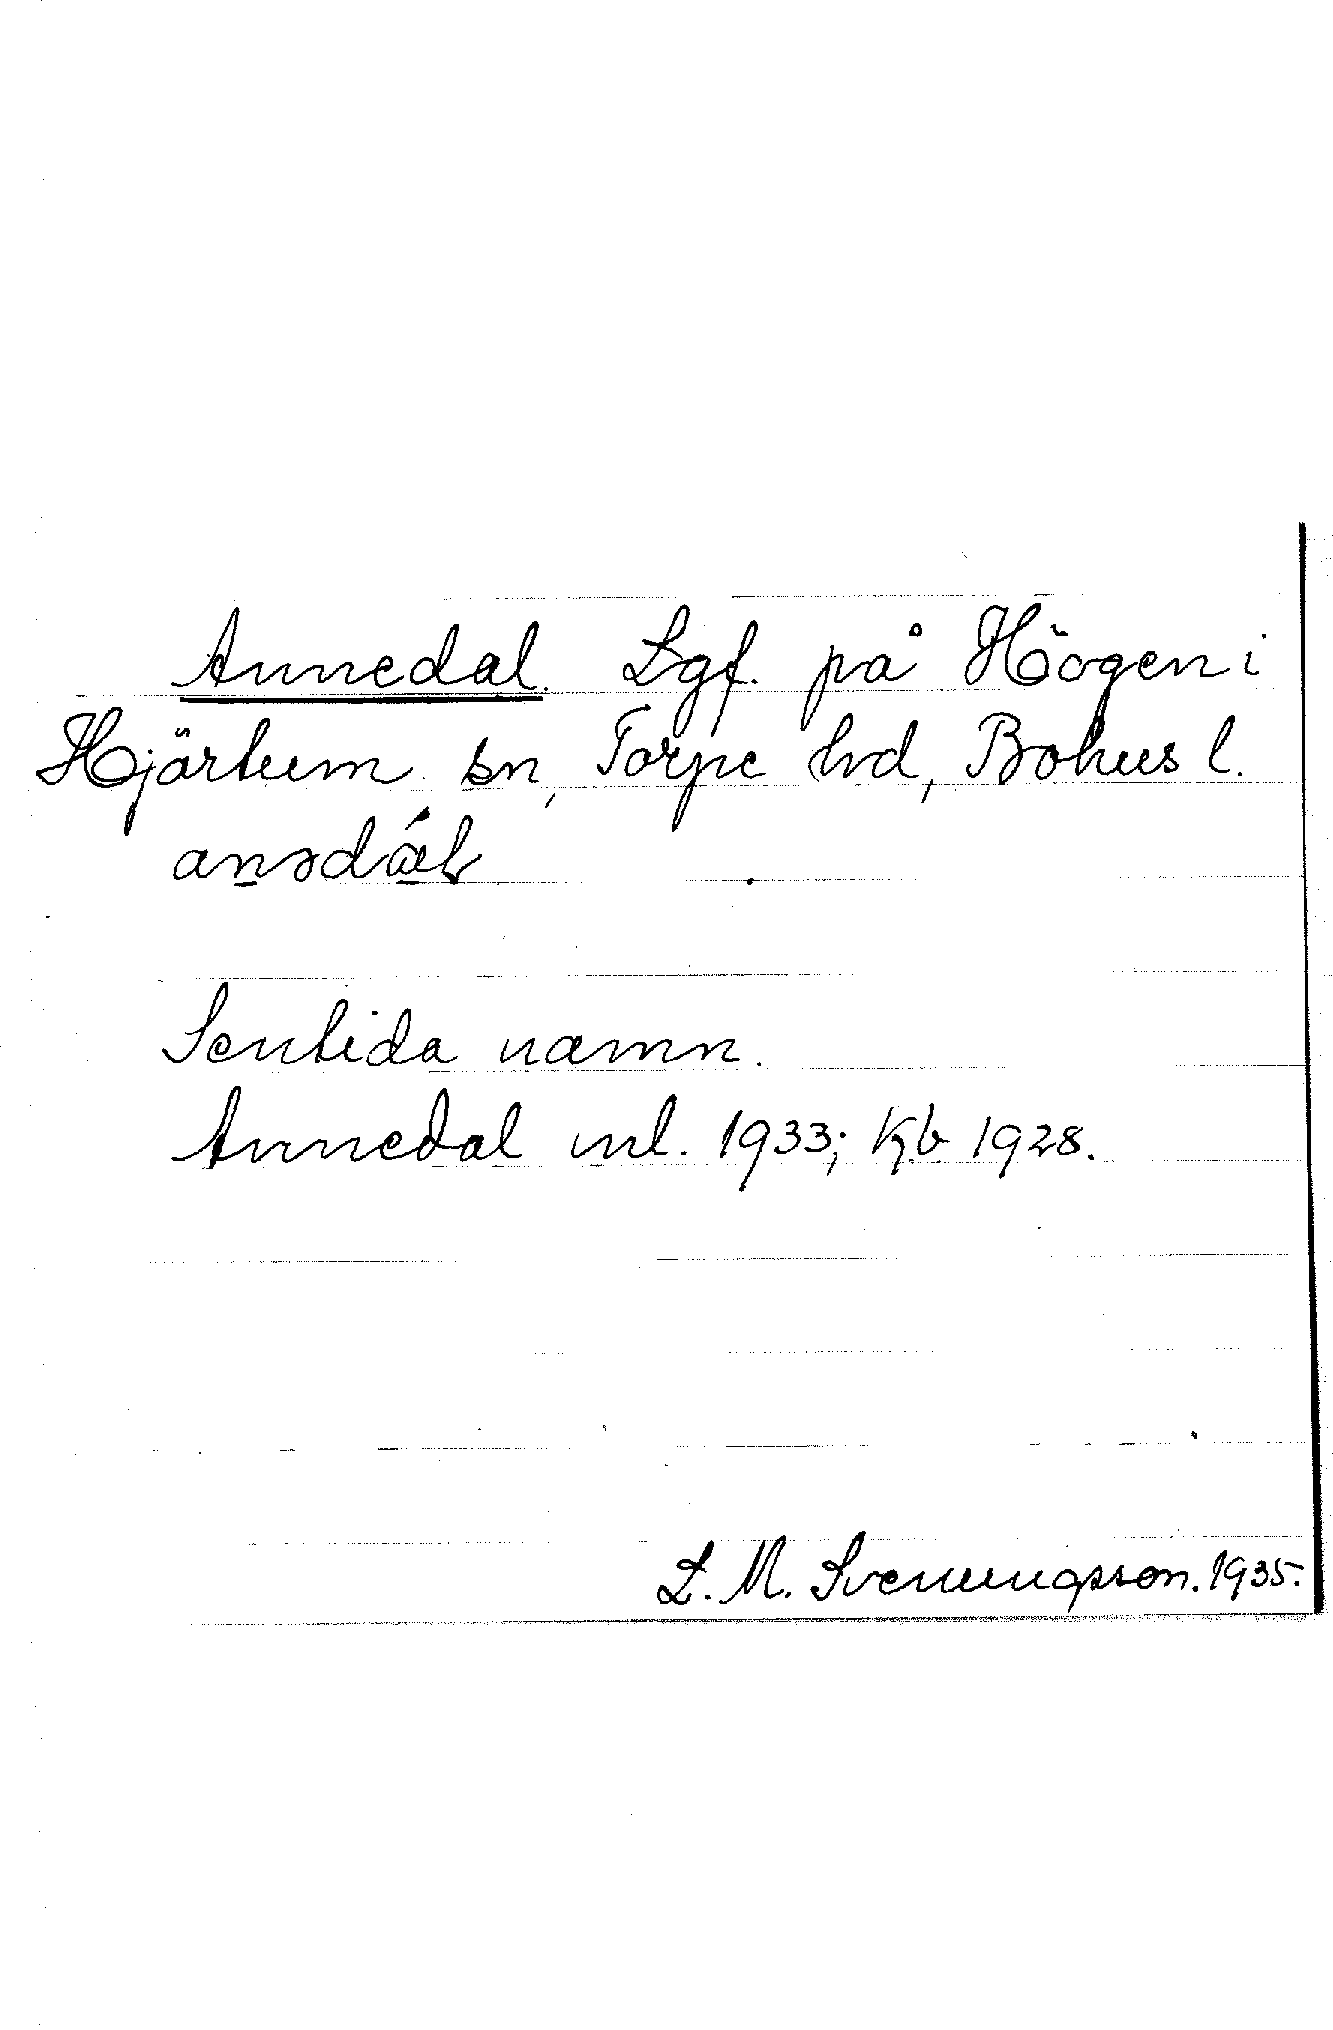 Annedal. Lgf. på Högen i
Hjärtum sn, Torpe hd, Bohusl.
anədál
Sentida namn.
Annedal ml. 1933; Kb 1928.
L. M. Svenungsson. 1935.